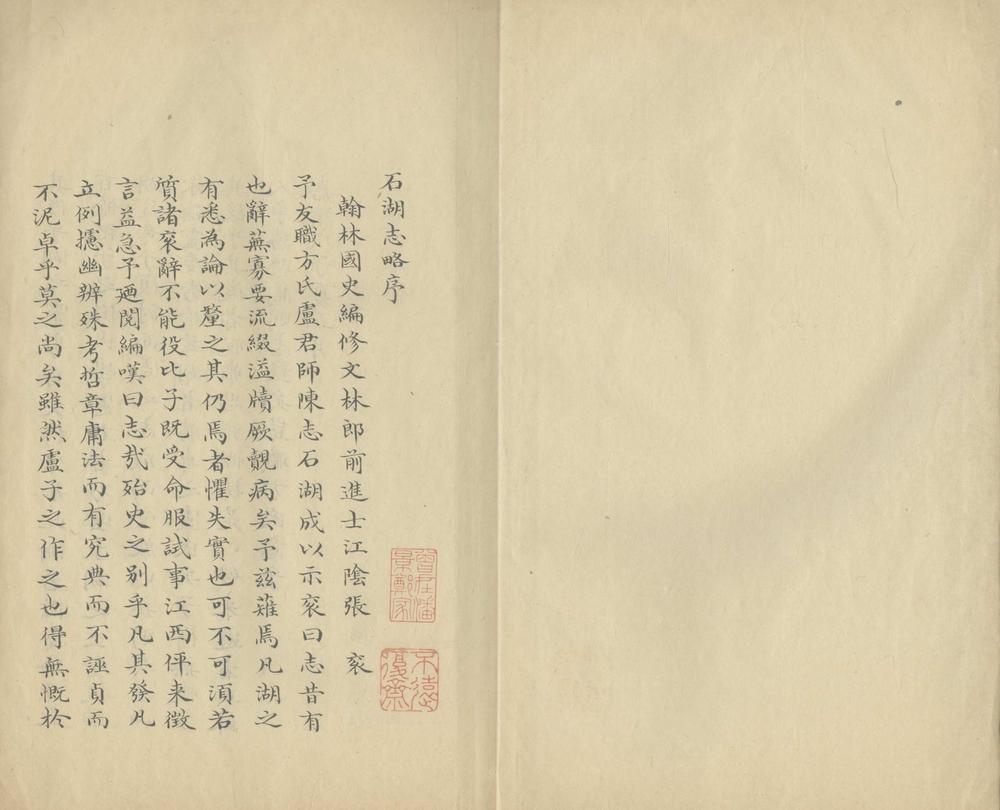 石湖志略序
翰林國史編修文林郎前進士江陰張 袞
予友職方氏盧君師陳志石湖成以示袞曰志昔有
也辭蕪寡要流綴溢牘厥覿病矣予茲薙焉凡湖之
有悉為論以釐之其仍焉者懼失實也可不可湏若
質諸袞辭不能役比子既受命服試事江西伻来徵
言益急予廼閱編嘆曰志㢤殆史之别乎凡其發凡
立例攄幽辨殊考哲章庸法而有究典而不誣貞而
不泥卓乎莫之尚矣雖然盧子之作之也得無慨於
曾在潘
景鄭家
不遠
復齋